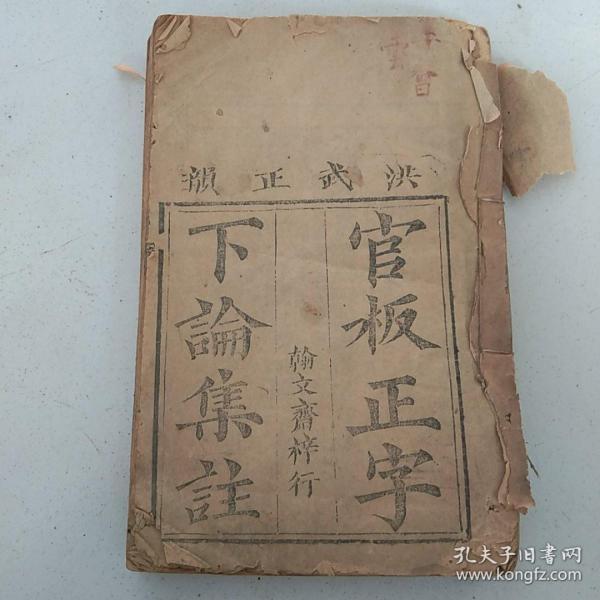 洪武正韻
官板正字
翰文齋梓行
下論集註
孔夫子旧书网
www.kongfz.com